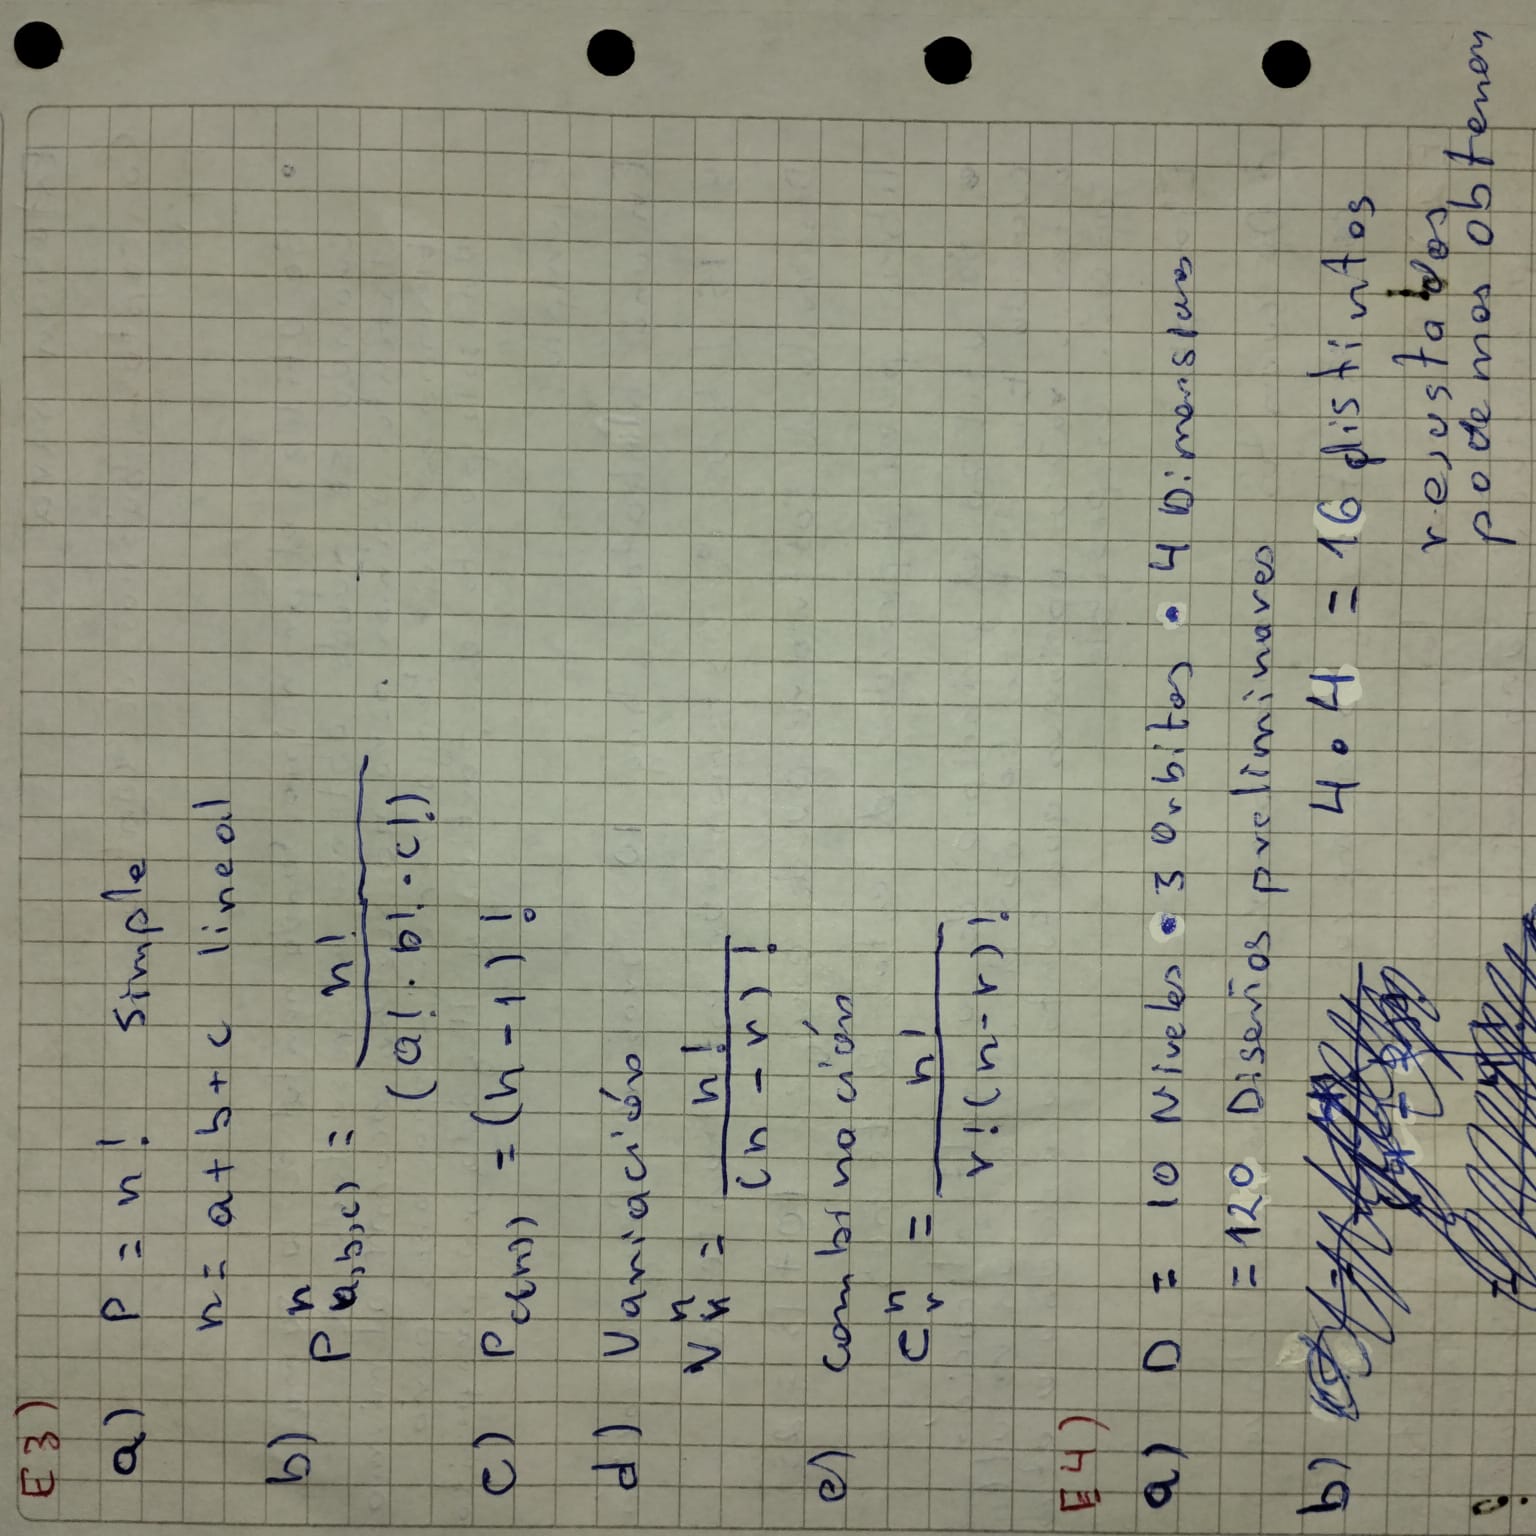 E3)
a) P = n! Simple
n = a+b+c lineal
b) P^n_{a,b,c} = n! / (a!·b!·c!)
c) P_{c(n)} = (n-1)!
d) Variación
V^n_n = n! / (n-r)!
e) Combinación
C^n_r = n! / r!(n-r)!
E4)
a) D = 10 Niveles • 3 Orbitas • 4 Dimensiones
= 120 Diseños preliminares
b) 4 • 4 = 16 distintos
resustados
podemos obtener